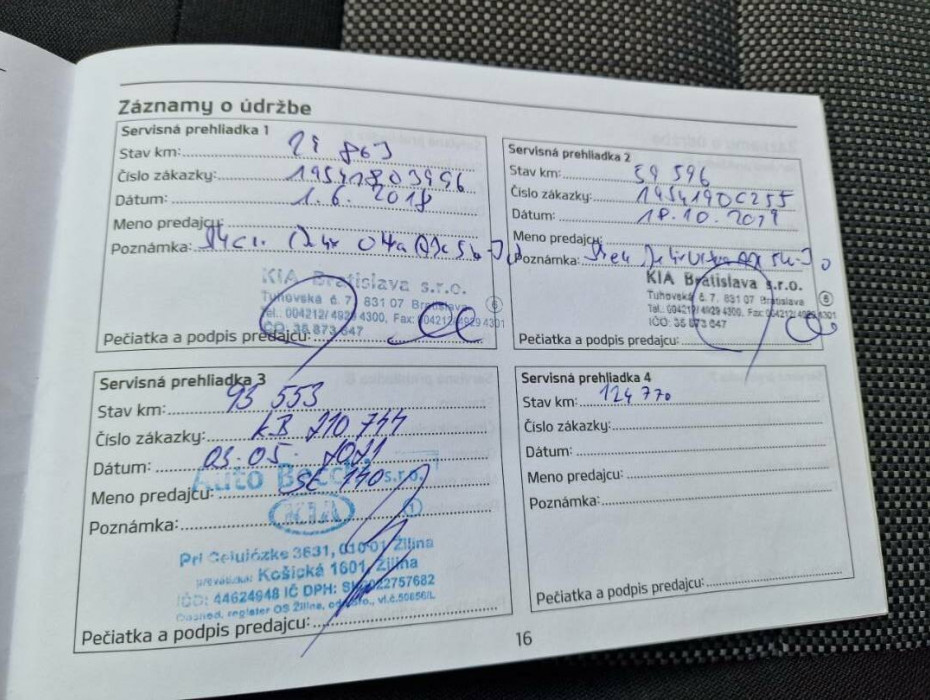 Záznamy o údržbe
Servisná prehliadka 1
Stav km: 28 863
Číslo zákazky: 19541803996
Dátum: 1.6. 2018
Meno predajcu:
Poznámka:
KIA Bratislava s.r.o.
Tuhovská č. 7, 831 07 Bratislava 6
Tel.: 004212/ 4929 4300, Fax: 004212/ 4929 4301
IČO: 35 873 647
Pečiatka a podpis predajcu:
Servisná prehliadka 2
Stav km: 59 596
Číslo zákazky: 19541906255
Dátum: 18.10.2019
Meno predajcu:
Poznámka:
KIA Bratislava s.r.o.
Tuhovská č. 7, 831 07 Bratislava 6
Tel.: 004212/ 4929 4300, Fax: 004212/ 4929 4301
IČO: 35 873 647
Pečiatka a podpis predajcu:
Servisná prehliadka 3
Stav km: 93 553
Číslo zákazky: KB 710 744
Dátum: 03.05. 2021
Auto s.r.o.
Meno predajcu: SE 140
KIA 1
Poznámka:
Pri Celulózke 3631, 010 01 Žilina
prevádzka: Košická 1601, Žilina
IČO: 44624948 IČ DPH: SK2022757682
Obchod. register OS Žilina, odd. sro., vl.č.50656/L
Pečiatka a podpis predajcu:
Servisná prehliadka 4
Stav km: 124 770
Číslo zákazky:
Dátum:
Meno predajcu:
Poznámka:
Pečiatka a podpis predajcu:
16